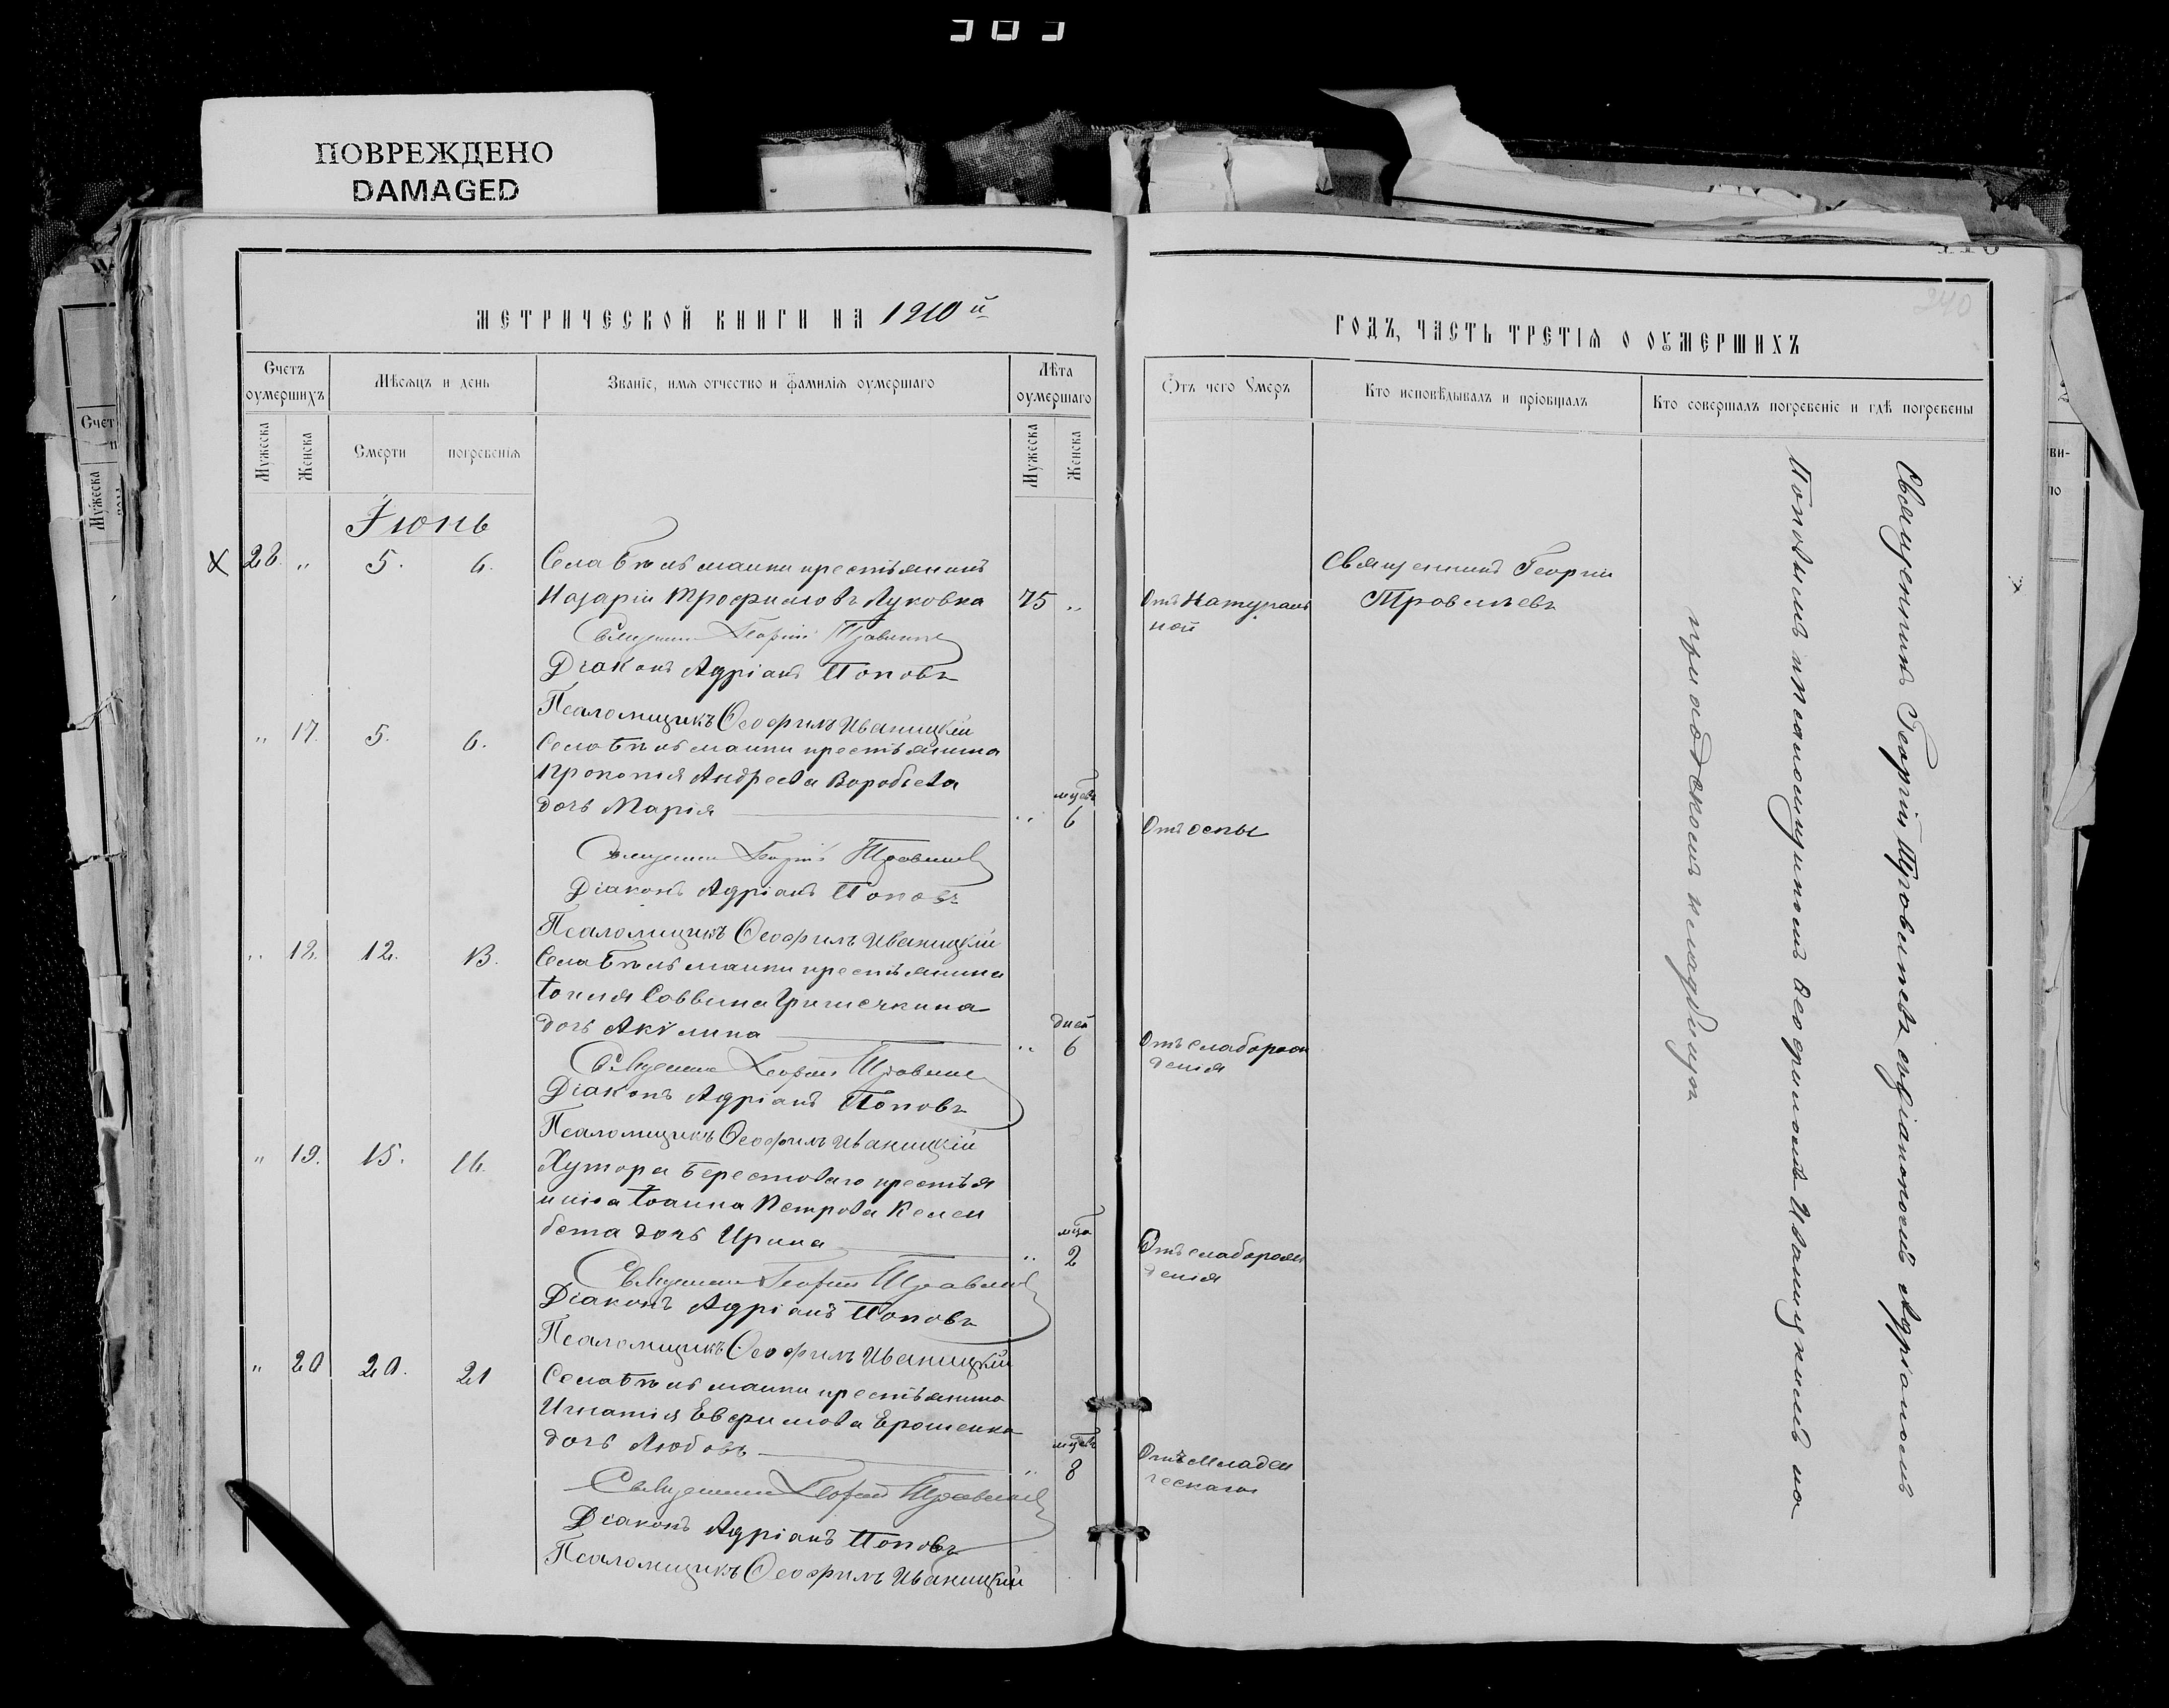 ПОВРЕЖДЕНО
DAMAGED
МЕТРИЧЕСКОЙ КНИГИ НА 1910й
Счетъ оумершихъ
Мѣсяцъ и день
Званіе, имя отчество и фамилія оумершаго
Лѣта оумершаго
Мужеска
Женска
Смерти
погребенія
Мужеска
Женска
Іюнь
28. „ 5. 6. Села Бѣльманки крестьянинъ
Назарій Трофимовъ Луковка 75 „
Священникъ Георгій
Діаконъ Адріанъ Поповъ
Псаломщикъ Ѳеофилъ Иваницкій
„ 17. 5. 6. Села Бѣльманки крестьянина
Прокопія Андреева Воробьева
дочь Марія „ мцевъ 6
Священникъ Георгій
Діаконъ Адріанъ Поповъ
Псаломщикъ Ѳеофилъ Иваницкій
„ 18. 12. 13. Села Бѣльманки крестьянина
Саввина
дочь Акѵлина „ дней 6
Священникъ Георгій
Діаконъ Адріанъ Поповъ
Псаломщикъ Ѳеофилъ Иваницкій
„ 19. 15. 16. Хутора Берестоваго крестья
нина Іоанна Петрова Келем
бета дочь Ирина „ мца 2
Священникъ Георгій
Діаконъ Адріанъ Поповъ
Псаломщикъ Ѳеофилъ Иваницкій
„ 20 20. 21 Села Бѣльманки крестьянина
Игнатія Евфимова Ерошенка
дочь Любовь „ мцевъ 8
Священникъ Георгій
Діаконъ Адріанъ Поповъ
Псаломщикъ Ѳеофилъ Иваницкій
240
ГОДЪ, ЧАСТЬ ТРЕТІЯ О ОУМЕРШИХЪ
Ѿъ чего Умеръ
Кто исповѣдывалъ и пріобщалъ
Кто совершалъ погребеніе и гдѣ погребены
Отъ Натураль
ной
Священникъ Георгій
Отъ оспы
Отъ слаборож
денія
Отъ слаборож
денія
Отъ младен
ческаго
Священникъ Георгій съ діакономъ Адріаномъ
Поповымъ и псаломщикомъ Ѳеофиломъ Иваницкимъ на
приходскомъ кладбищѣ